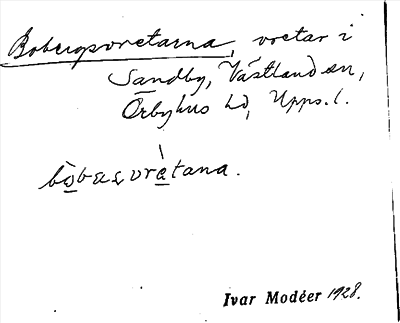 Bobergsvretarna, vretar i
Sandby, Västland sn,
Örbyhus hd, Upps. l.
Ivar Modéer 1928.